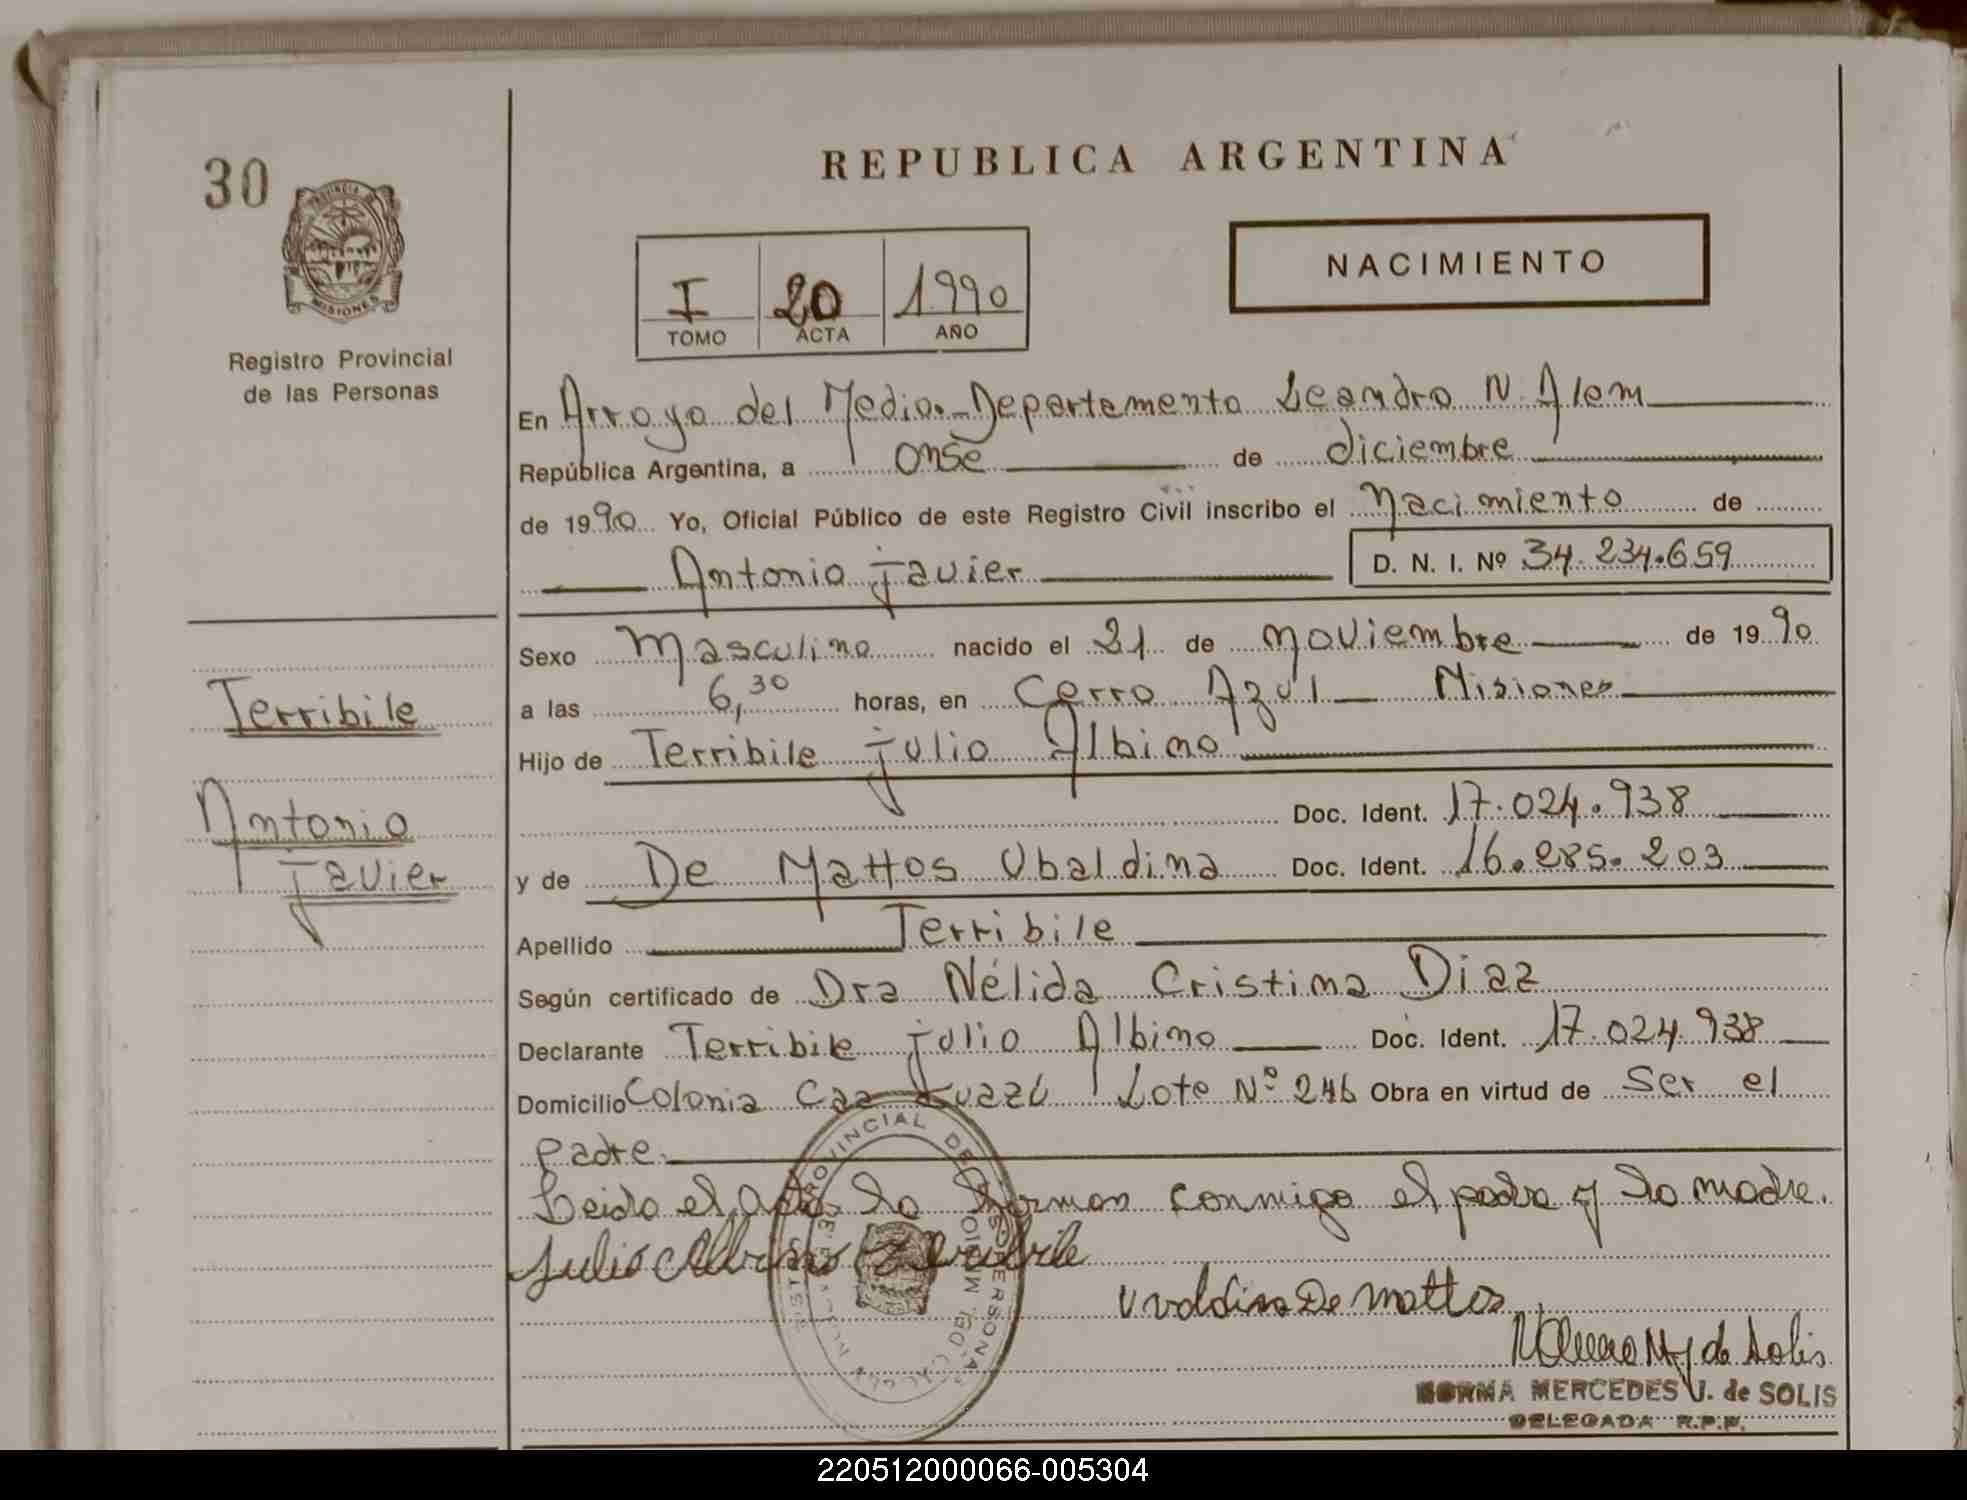 REPUBLICA ARGENTINA
30
PROVINCIA
MISIONES
Registro Provincial
de las Personas
NACIMIENTO
I 20 1990
TOMO ACTA AÑO
En Arroyo del Medio. Departamento Leandro N. Alem
República Argentina, a onse de diciembre
de 1990 Yo, Oficial Público de este Registro Civil inscribo el Nacimiento de
Antonio javier D. N. I. Nº 34.234.659
Sexo Masculino nacido el 21 de noviembre de 1990
a las 6,30 horas, en Cerro Azul Misiones
Hijo de Terribile julio Albino
Doc. Ident. 17.024.938
y de De Mattos Ubaldina Doc. Ident. 16.285.203
Apellido Terribile
Según certificado de Dra Nélida Cristina Diaz
Declarante Terribile julio Albino Doc. Ident. 17.024.938
Domicilio Colonia Caa Guazú Lote Nº 246 Obra en virtud de ser el
padre.
Leida el acta la firman conmigo el padre y la madre.
Julio Albino Terribile
Uvaldina De Mattos
NORMA MERCEDES J. de SOLIS
DELEGADA R.P.P.
Terribile
Antonio
javier
220512000066-005304